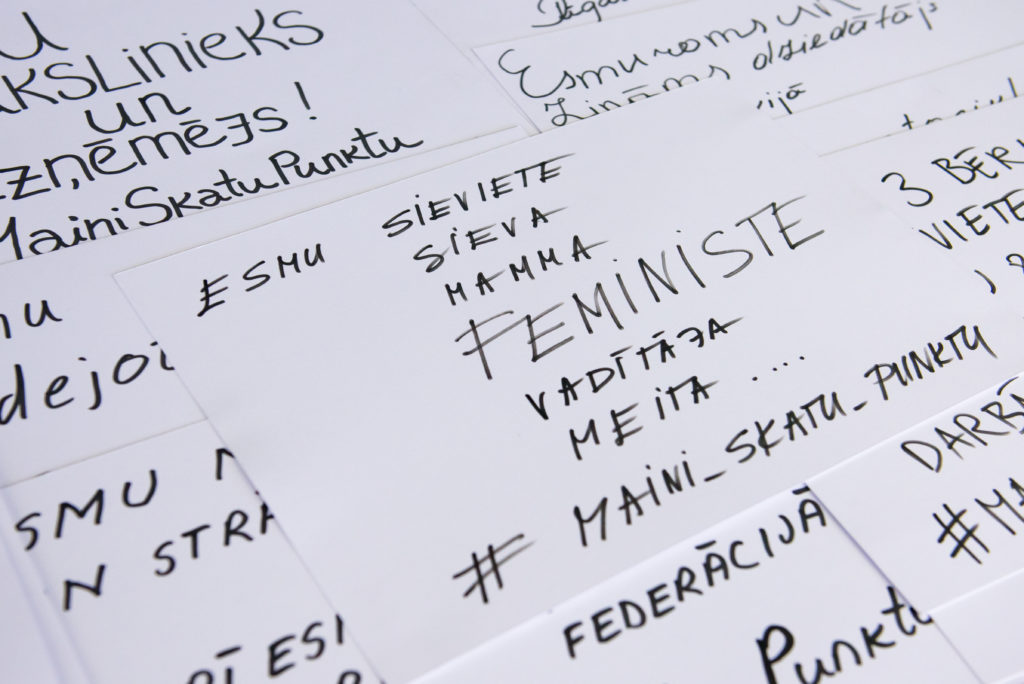 UN
UZŅĒMĒJS!
MainiSkatuPunktu
Esmu roms un
dziedātājs
ESMU SIEVIETE
SIEVA
MAMMA
FEMINISTE
VADĪTĀJA
MEITA ...
# MAINI_SKATU_PUNKTU
3 BĒR
VIETE
dejo
SMU
N STR
ESI
FEDERĀCIJĀ
Punktu
DARBĀ
#MA